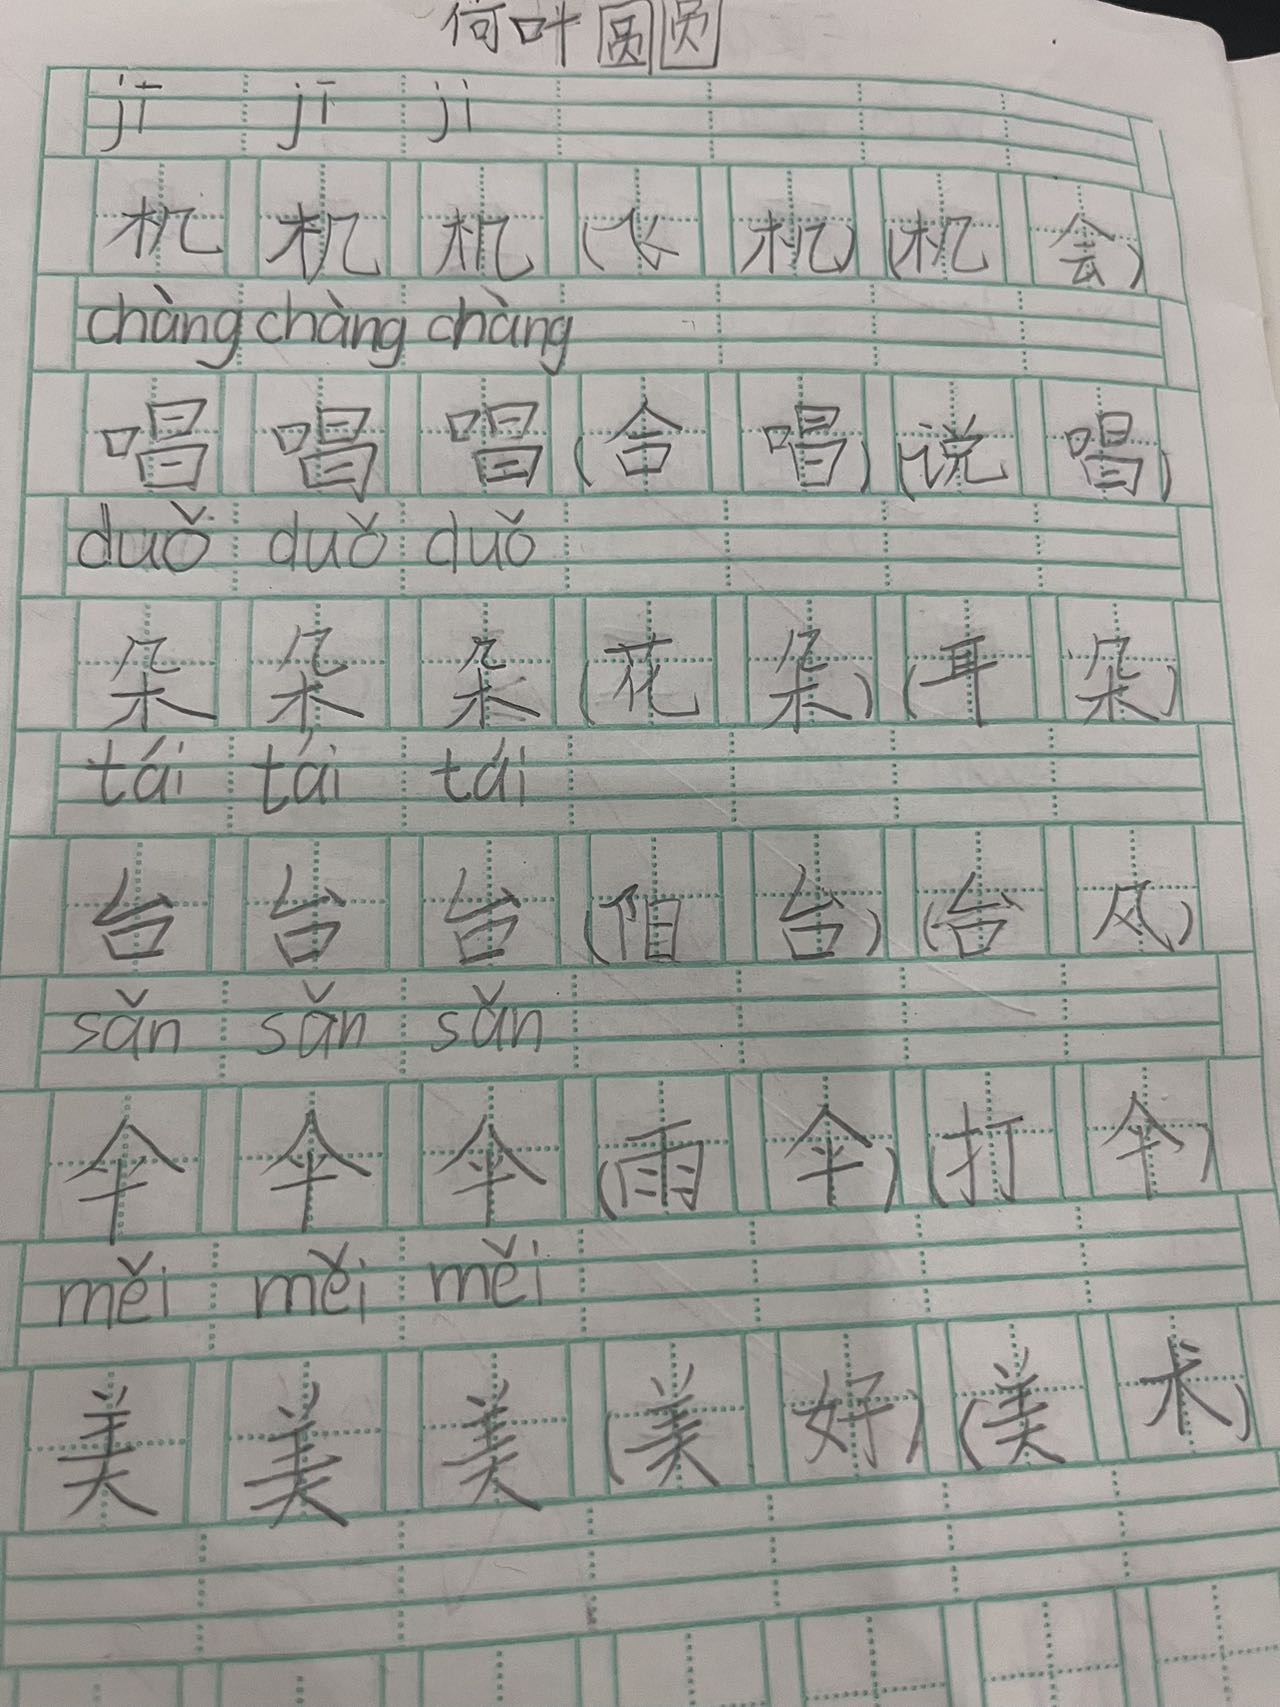 荷叶圆圆
jī jī ji
机 机 机 (飞 机) (机 会)
chàng chàng chàng
唱 唱 唱 (合 唱) (说 唱)
duǒ duǒ duǒ
朵 朵 朵 (花 朵) (耳 朵)
tái tái tái
台 台 台 (阳 台) (台 风)
sǎn sǎn sǎn
伞 伞 伞 (雨 伞) (打 伞)
měi měi měi
美 美 美 (美 好) (美 术)